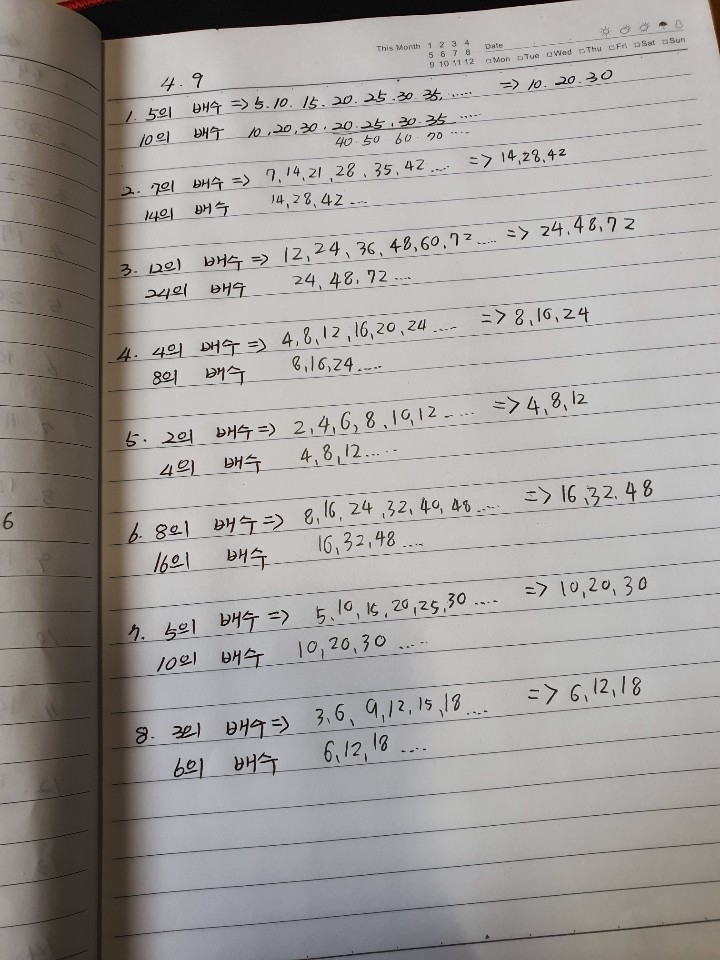 This Month 1 2 3 4
5 6 7 8
9 10 11 12
Date
□Mon □Tue □Wed □Thu □Fri □Sat □Sun
4.9
1. 5의 배수 => 5.10.15.20.25.30.35, ..... => 10.20.30
10의 배수 10,20,30.20.25.30.35 .....
40 50 60 70 ....
2. 7의 배수 => 7,14,21,28,35,42.... => 14,28,42
14의 배수 14,28,42 ...
3. 12의 배수 => 12,24,36,48,60,72..... => 24,48,72
24의 배수 24,48,72 ....
4. 4의 배수 => 4,8,12,16,20,24 .... => 8,16,24
8의 배수 8,16,24.....
5. 2의 배수 => 2,4,6,8,10,12 ..... => 4,8,12
4의 배수 4,8,12.....
6. 8의 배수 => 8,16,24,32,40,48.... => 16,32,48
16의 배수 16,32,48 ....
7. 5의 배수 => 5,10,15,20,25,30 .... => 10,20,30
10의 배수 10,20,30 .....
8. 3의 배수 => 3,6,9,12,15,18.... => 6,12,18
6의 배수 6,12,18 ....
6